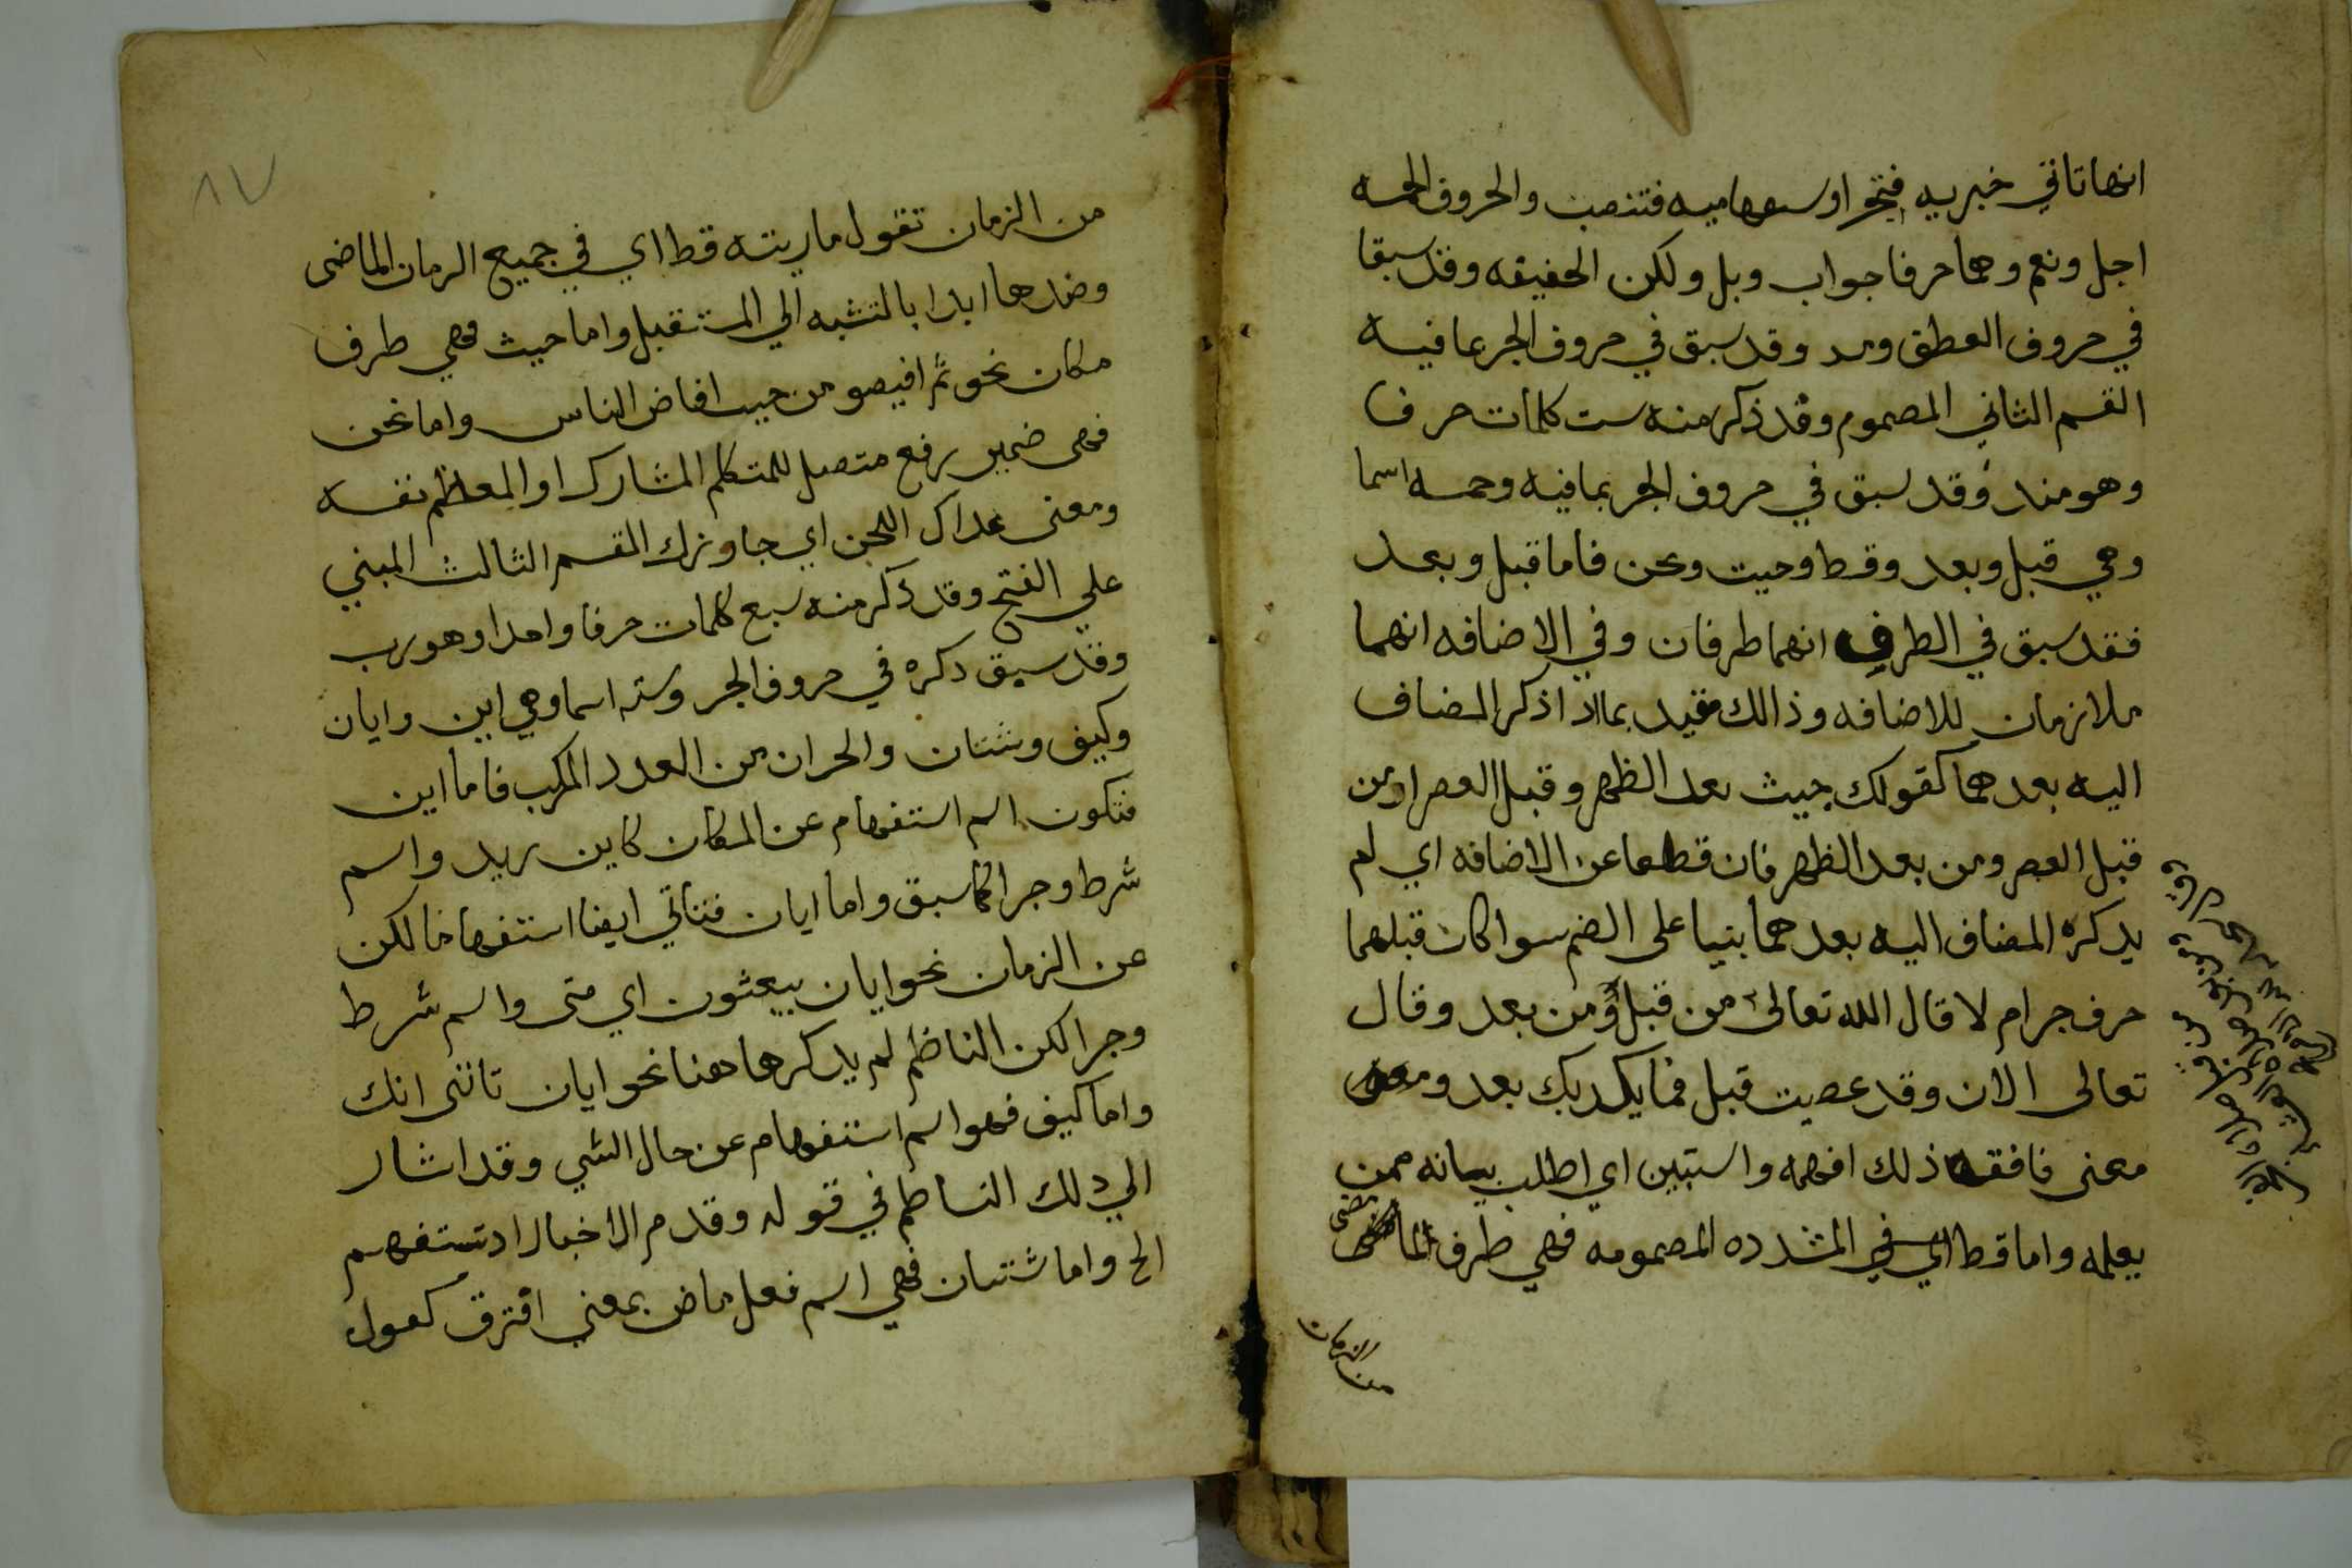 انها تاتي خبريه فتجر او ستفهاميه فتنصب والحروف الخمسه
اجل ونعم وهما حرفا جواب وبل ولكن الخفيفه وقد سبقا
في حروف العطق ومد وقد سبق في حروف الجر بما فيه
القسم الثاني المصموم وقد ذكر منه ست كلمات حرفا
وهو منذ وقد سبق في حروف الجر بما فيه وحمسه اسما
وهي قبل وبعد وقط وحيت ونحن فاما قبل وبعد
فقد سبق في الطرف انهما طرفان وفي الاضافه انهما
ملازمان للاضافه وذالك مقيد بما اذا ذكر المضاف
اليه بعدهما كقولك جيث بعد الظهر وقبل العصر او من
قبل العصر ومن بعد الظهر فان قطعا عن الاضافه اي لم
يدكره المضاف اليه بعدهما بنيا على الضم سوا كان قبلهما
حرف جر ام لا قال الله تعالى من قبل ومن بعد وقال
تعالى الان وقد عصيت قبل فما يكدبك بعد ومعنى
معنى فافقه ذلك افهمه واستبين اي اطلب بيانه ممن
يعلمه واما قط اي في المشدده المصمومه فهي طرف لما مضى
من الزمان
٨٧
من الزمان تقول ماريته قط اي في جميع الرمان الماضى
وضدها ابدا بالنتسبه الي المستقبل واما حيث فهي طرف
مكان نحو ثم افيصو من حيب افاض الناس واما نحن
فهى ضمير رفع متصل للمتكلم المشارك او المعظم نفسه
ومعنى عداك اللحن اي جاوزك القسم الثالث المبني
علي الفتح وقد ذكر منه سبع كلمات حرفا واحدا وهو رب
وقد سبق دكره في حروف الجر وسته اسما وهي اين وايان
وكيف وشتان والجران من العدد المركب فاما اين
فتكون اسم استفهام عن المكان كاين زيد واسم
شرط وجرا كما سبق واما ايان فتاتي ايضا استفهاما لكن
عن الزمان نحو ايان يبعثون اي متى واسم شرط
وجرا لكن الناظم لم يدكرها هنا نحو ايان تاتنى اتك
واما كيف فهو اسم استفهام عن حال الشي وقد اشار
الي دلك الناظم في قوله وقدم الاخبار اد تستفهم
الح واما شتان فهي اسم فعل ماض بمعنى افترق كقول